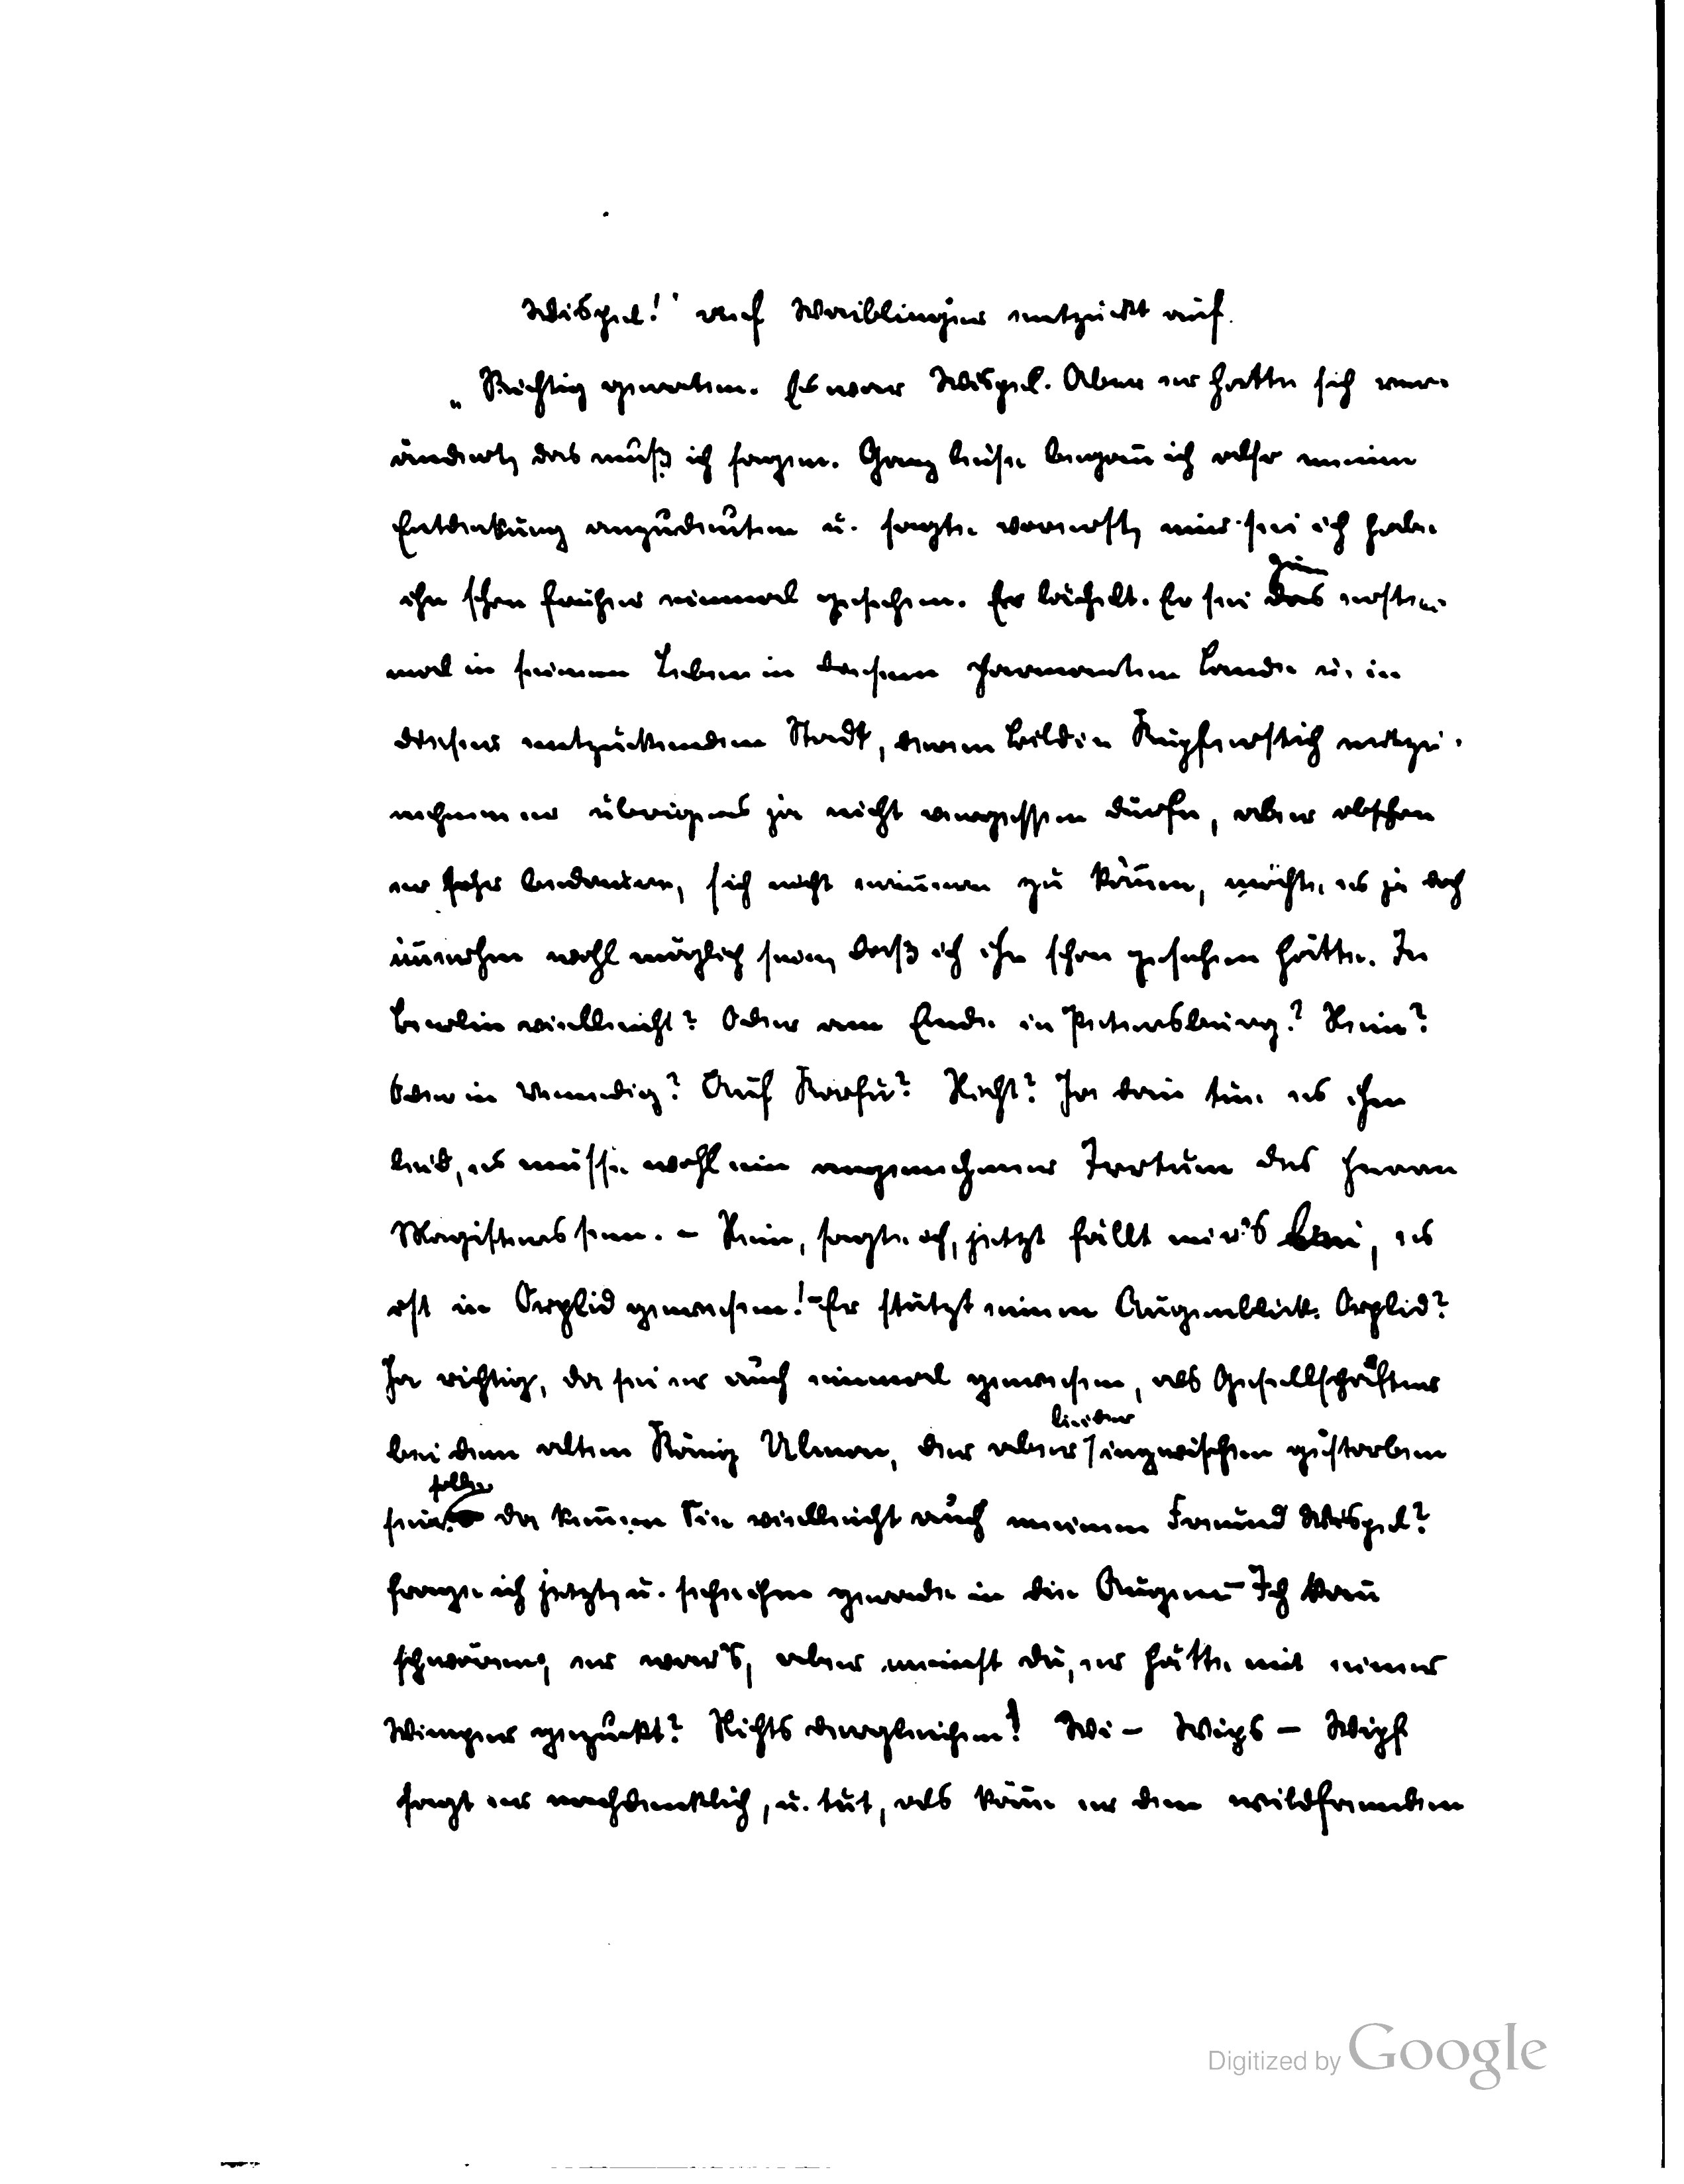 Wispel!" rief Waiblinger entzückt auf.
„Richtig geraten. Es war Wispel. Aber er hatte sich ver-
ändert, das muß ich sagen. Ganz leise begann ich also meine
Entdeckung anzudeuten u. sagte vorerst, mir sei ich habe
ihn schon früher einmal gesehen. Er lächelt. Er sei das zum erste
mal in seinem Leben in diesem charmanten Lande u. in
dieser entzückenden Stadt, deren Bild in Kupferstich mitzu-
nehmen er übrigens ja nicht vergessen dürfe, aber obschon
er sehr bedaure, sich nicht erinnern zu können, möchte es ja doch
immerhin wohl möglich sein, daß ich ihn schon gesehen hätte. In
Berlin vielleicht? Oder am Ende in Petersburg? Nein?
Oder in Venedig? Auf Korfu? Nicht? Ja dann tue es ihm
leid, es müsse wohl ein angenehmer Irrtum des Herrn
Magisters sein. – Nein, sagte ich, jetzt fällt mir's bei, es
ist in Orplid gewesen! – Er stutzt einen Augenblick. Orplid?
Ja richtig, da sei er auch einmal gewesen, als Gesellschafter
bei dem alten König Ulmon, der aber leider inzwischen gestorben
sein solle. da kennen Sie vielleicht auch meinen Freund Wispel?
frage ich jetzt, u. sehe ihm gerade in die Augen – Ich kann
schwören, er war's, aber meinst du, er hätte mit einer
Wimper gezuckt? Nichts dergleichen! Wi – Wips – Wipf
sagt er nachdenklich, u. tut, als könne er den wildfremden
Digitized by Google